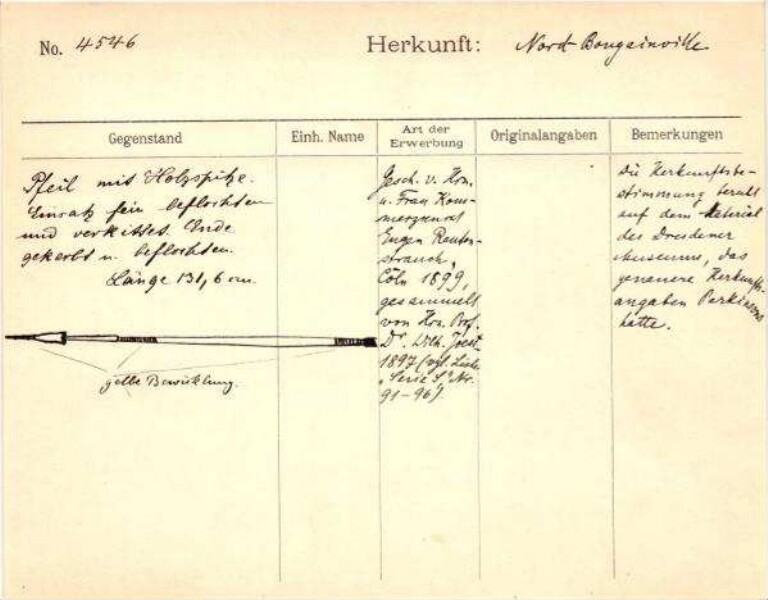 No. 4546
Herkunft: Nord Bougainville
Gegenstand
Einh. Name
Art der
Erwerbung
Originalangaben
Bemerkungen
Pfeil mit Holzspitze.
Einsatz fein beflochten
und verkittet. Ende
gekerbt u. beflochten.
Länge 131,6 cm.
gelbe Bewicklung.
Gesch. v. Hrn.
u. Frau Kom-
merzienrat
Eugen Rauten-
strauch,
Cöln 1899,
gesammelt
von Hrn. Prof.
Dr. Wilh. Joest
1897 (vgl. Liste
„Serie S, Nr.
91-96).
Die Herkunftsbe-
stimmung beruht
auf dem Material
des Dresdener
Museums, das
genauere Herkunfts-
angaben Parkinsons
hatte.